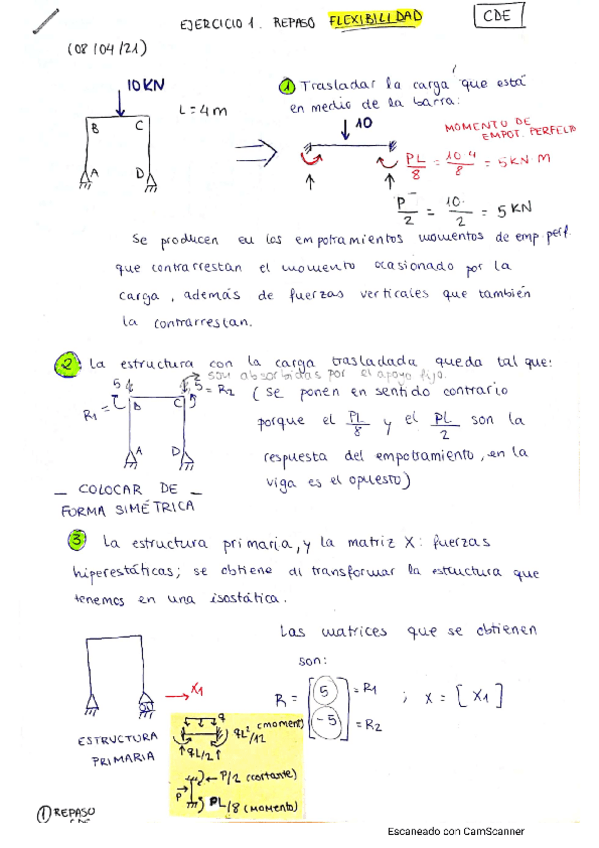 EJERCICIO 1. REPASO FLEXIBILIDAD
CDE
(08/04/21)
10KN
L = 4m
B C
A D
1 Trasladar la carga que está
en medio de la barra:
10
MOMENTO DE
EMPOT. PERFECTO
PL/8 = 10·4/8 = 5 KN·M
P/2 = 10/2 = 5 KN
Se producen en los empotramientos momentos de emp. perf.
que contrarrestan el momento ocasionado por la
carga, además de fuerzas verticales que también
la contrarrestan.
2 La estructura con la carga trasladada queda tal que:
son absorbidas por el apoyo fijo.
5 5
R1 = B C = R2
A D
(Se ponen en sentido contrario
porque el PL/8 y el PL/2 son la
respuesta del empotramiento, en la
viga es el opuesto)
_ COLOCAR DE _
FORMA SIMÉTRICA
3 La estructura primaria, y la matriz X: fuerzas
hiperestáticas; se obtiene di transformar la estructura que
tenemos en una isostática.
Las matrices que se obtienen
son:
X1
R = [5 -5] = R1 = R2 ; X = [X1]
ESTRUCTURA
PRIMARIA
q
qL²/12 (moment)
qL/2
P/2 (cortante)
P
PL/8 (momento)
1 REPASO
CDE
Escaneado con CamScanner